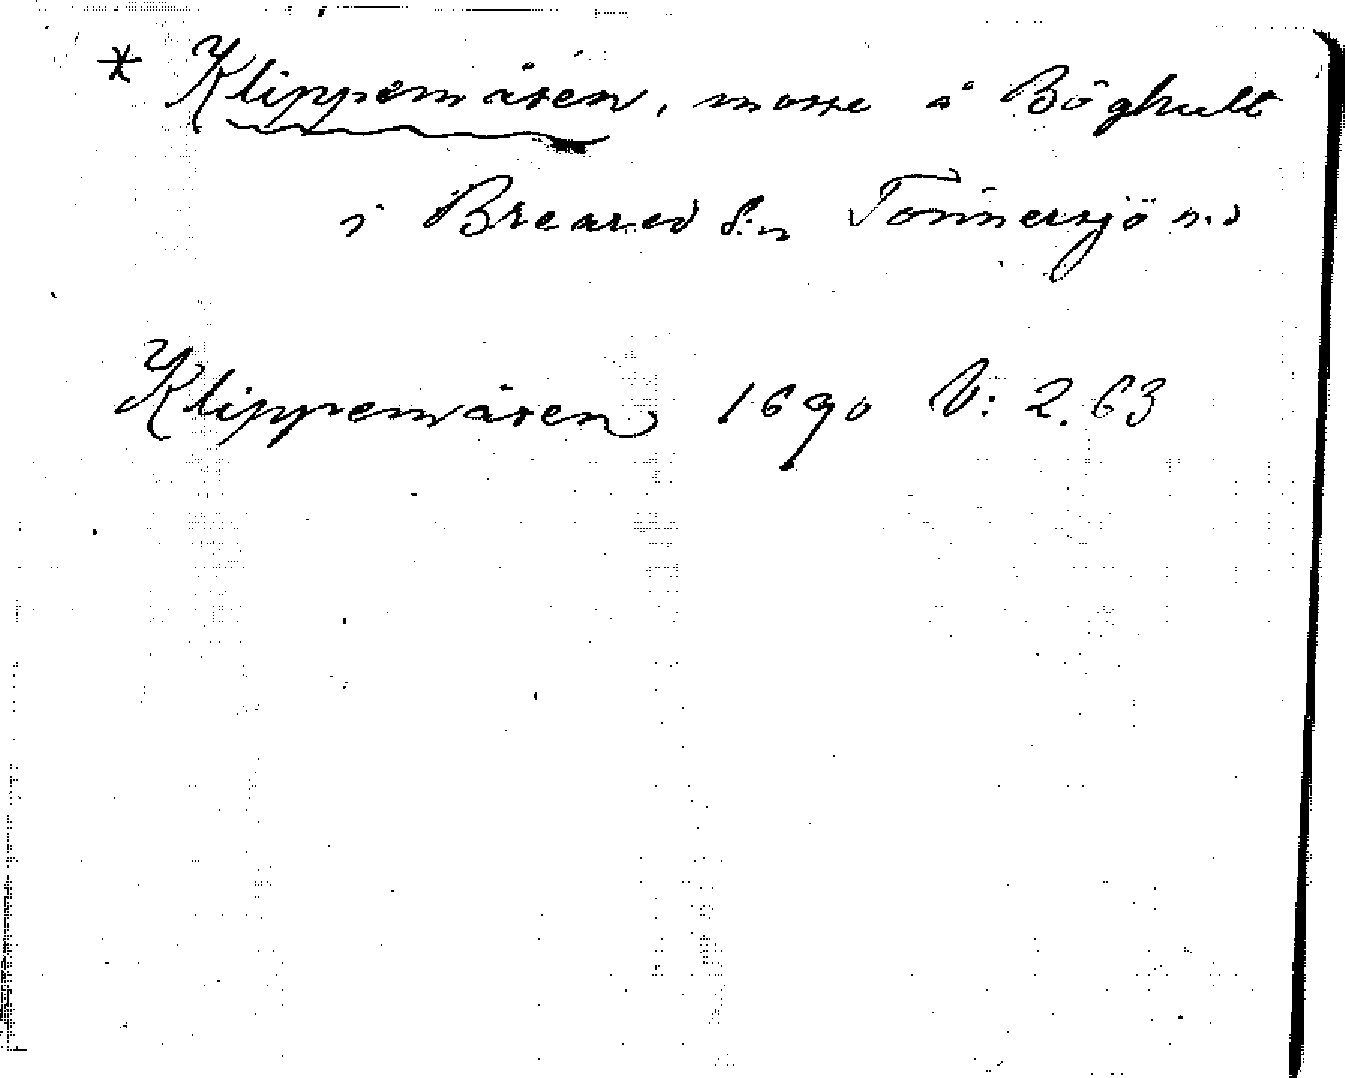 * Klippemåsen, mosse å Böghult
i Breared s:n Tönnersjö h:d
Klippemåsen 1690 V: 2.63